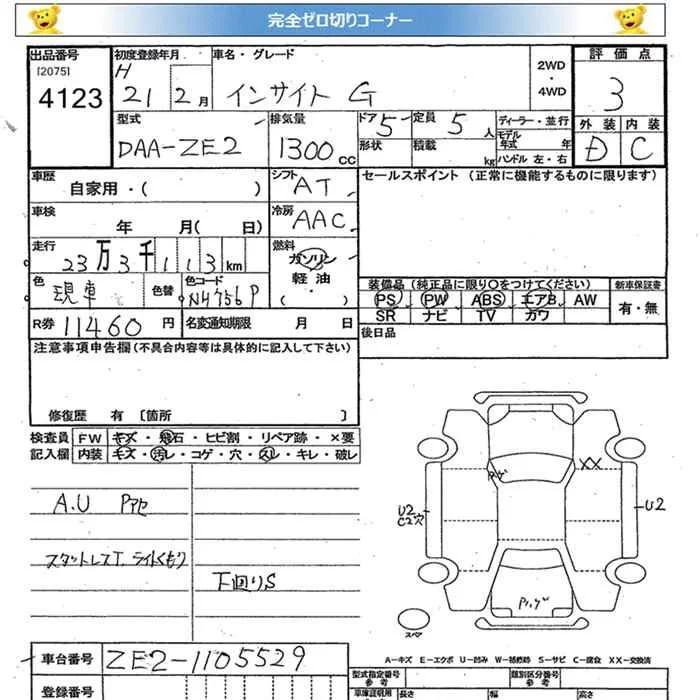 完全ゼロ切りコーナー
出品番号
[2075]
4123
初度登録年月
H
21 2月
車名・グレード
インサイト G
2WD
・
4WD
評価点
3
外装 内装
D C
型式
DAA-ZE2
排気量
1300cc
ドア 5
形状
定員 5人
積載 kg
ディーラー・並行
モデル年式 年
ハンドル 左・右
車歴
自家用・( )
シフト
AT
車検
年 月( 日)
冷房
AAC
走行
23万3千113km
燃料
ガソリン
・
軽油
( )
色
現車
色替
色コード
NH756P
R券 11460円
名変通知期限 月 日
セールスポイント (正常に機能するものに限ります)
装備品 (純正品に限り○をつけてください)
PS PW ABS エアB AW
SR ナビ TV カワ
新車保証書
有・無
後日品
注意事項申告欄(不具合内容等は具体的に記入して下さい)
修復歴 有 〔箇所 〕
検査員
記入欄
FW キズ・飛石・ヒビ割・リペア跡・×要
内装 キズ・汚レ・コゲ・穴・スレ・キレ・破レ
A.U Pアセ
スタットレスT. ライトくもり
下回りS
XX
U2
C2穴
U2
スペア
A-キズ E-エクボ U-凹み W-補修跡 S-サビ C-腐食 XX-交換済
車台番号 ZE2-1105529
登録番号
型式指定番号
参考
類別区分番号
参考
車庫証明用
長さ 幅 高さ